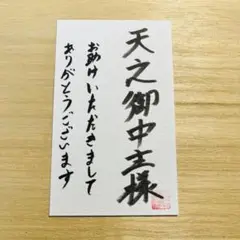 天之御中主様
お助けいただきまして
ありがとうございます